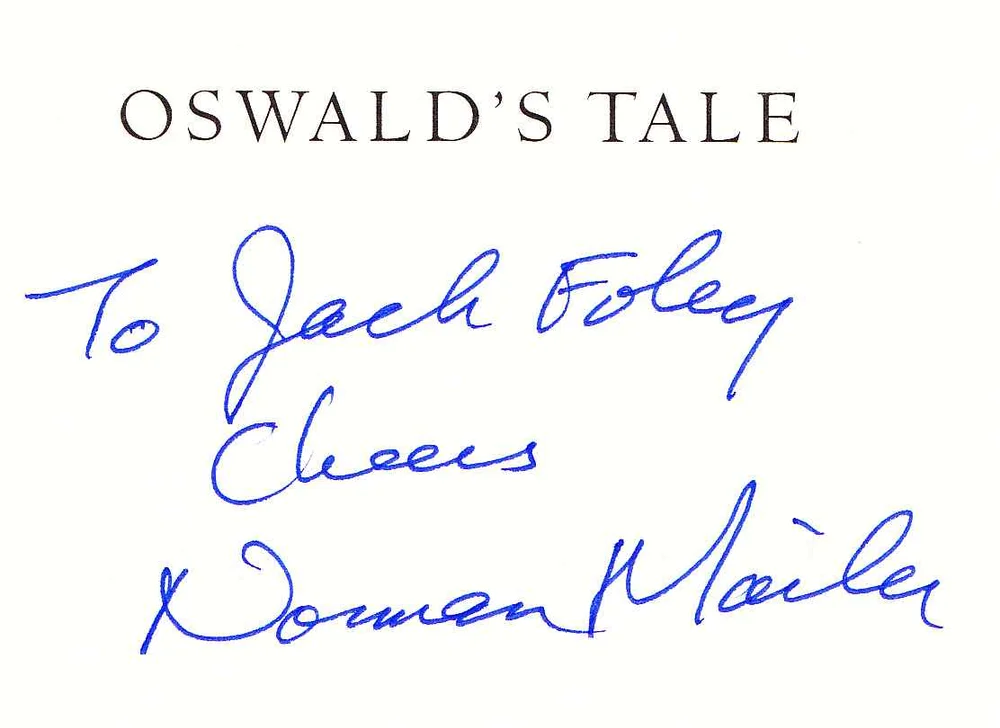 OSWALD'S TALE
To Jack Foley
Cheers
Norman Mailer